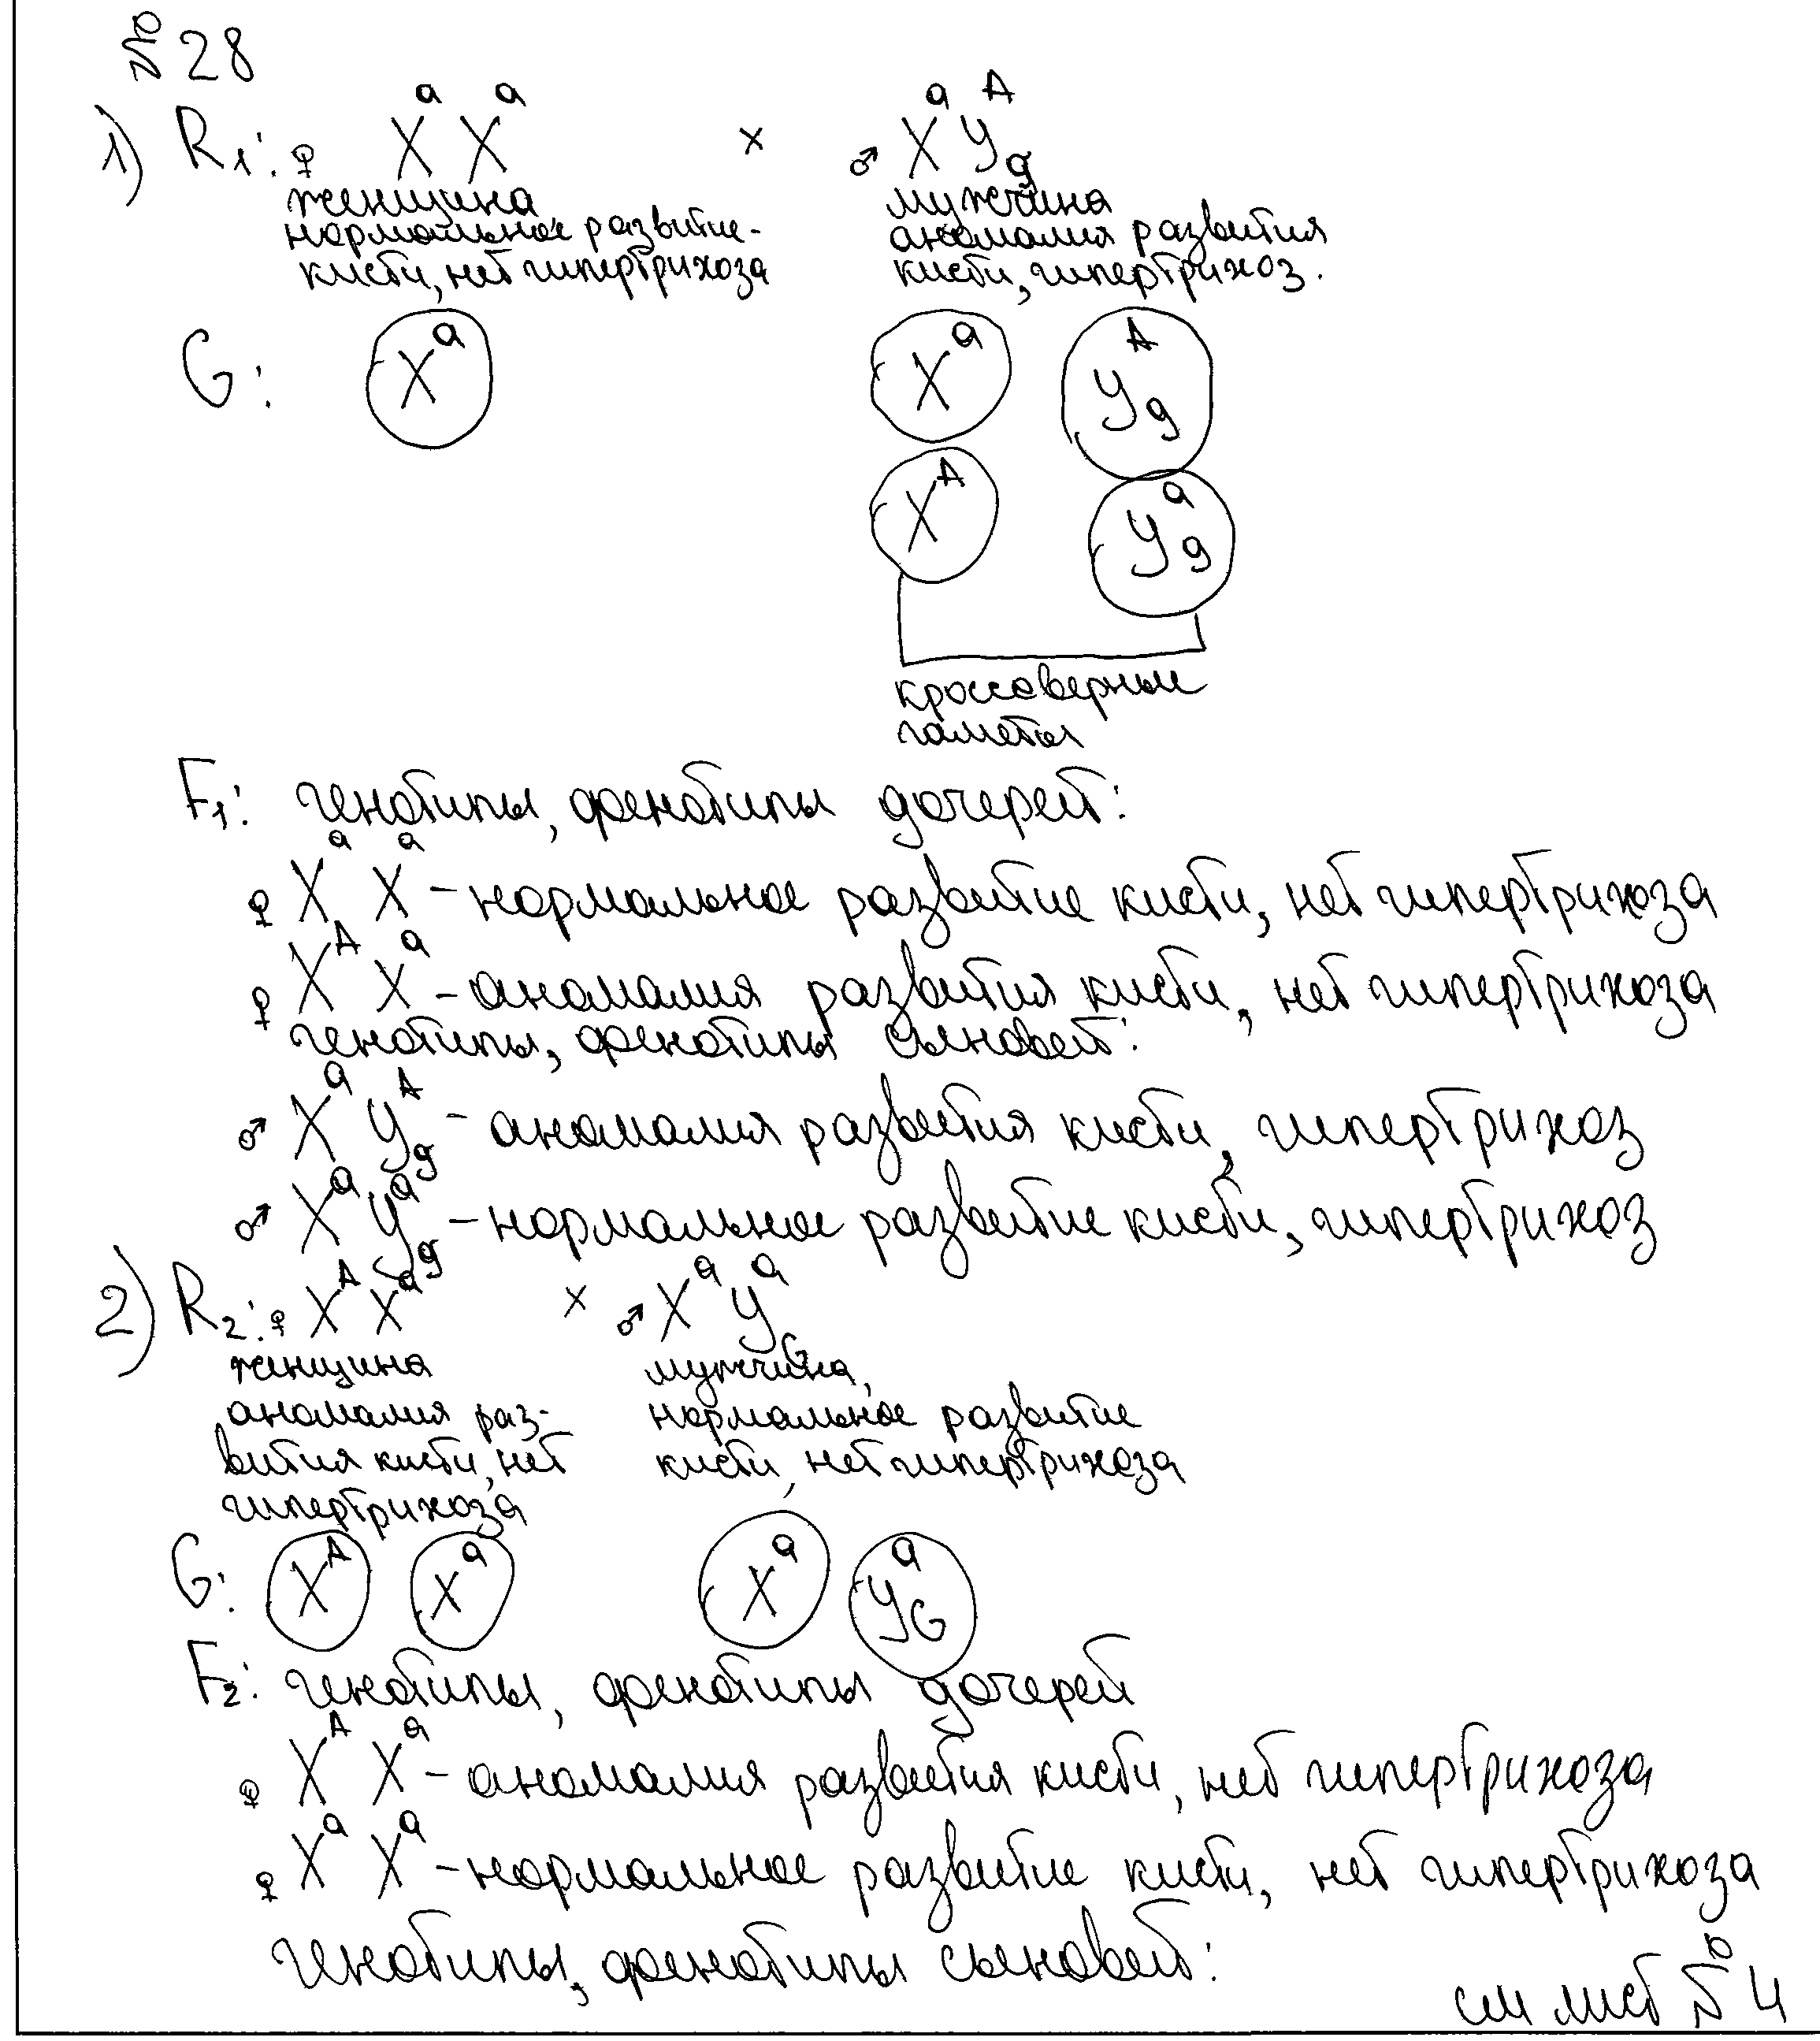 №28
1) R₁: ♀ XᵃXᵃ × ♂ XᵃYgᴬ
женщина мужчина
нормальное развитие аномалия развития
кисти, нет гипертрихоза кисти, гипертрихоз.
G: Xᵃ Xᵃ Ygᴬ
Xᴬ Ygᵃ
кроссоверные
гаметы
F₁: генотипы, фенотипы дочерей:
♀ XᵃXᵃ – нормальное развитие кисти, нет гипертрихоза
♀ XᴬXᵃ – аномалия развития кисти, нет гипертрихоза
генотипы, фенотипы сыновей:
♂ XᵃYgᴬ – аномалия развития кисти, гипертрихоз
♂ XᵃYgᵃ – нормальное развитие кисти, гипертрихоз
2) R₂: ♀ XᴬXᵃ × ♂ XᵃYGᵃ
женщина мужчина,
аномалия раз- нормальное развитие
вития кисти, нет кисти, нет гипертрихоза
гипертрихоза
G: Xᴬ Xᵃ Xᵃ YGᵃ
F₂: генотипы, фенотипы дочерей
♀ XᴬXᵃ – аномалия развития кисти, нет гипертрихоза
♀ XᵃXᵃ – нормальное развитие кисти, нет гипертрихоза
генотипы, фенотипы сыновей:
см лист №4